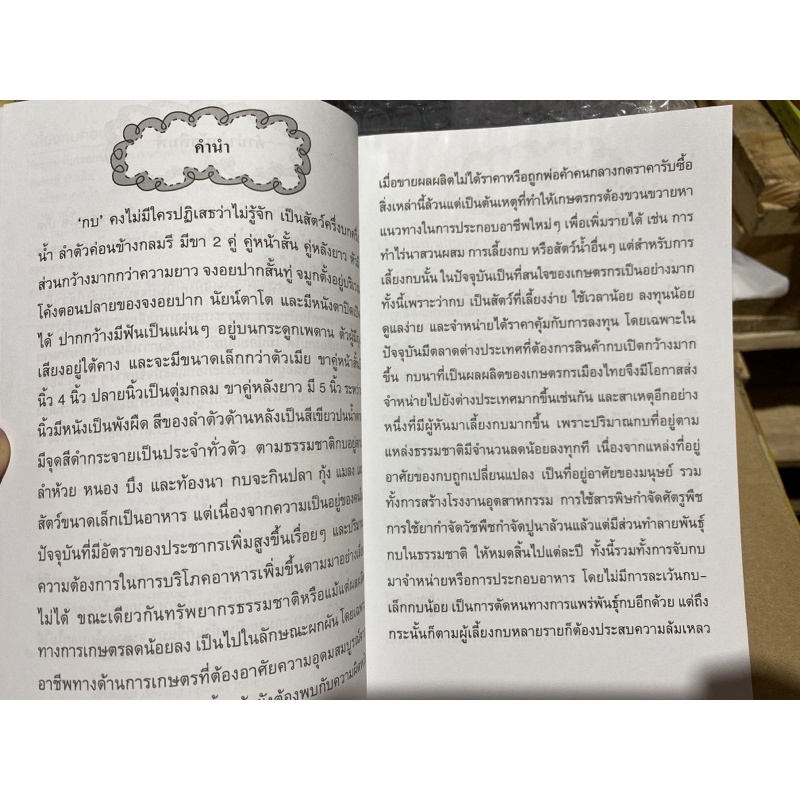 คำนำ
'กบ' คงไม่มีใครปฏิเสธว่าไม่รู้จัก เป็นสัตว์ครึ่งบกครึ่ง
น้ำ ลำตัวค่อนข้างกลมรี มีขา 2 คู่ คู่หน้าสั้น คู่หลังยาว
ส่วนกว้างมากกว่าความยาว จงอยปากสั้นทู่ จมูกตั้งอยู่บริเวณ
โค้งตอนปลายของจงอยปาก นัยน์ตาโต และมีหนังตาปิดเปิด
ได้ ปากกว้างมีฟันเป็นแผ่นๆ อยู่บนกระดูกเพดาน ตัวผู้มีถุง
เสียงอยู่ใต้คาง และจะมีขนาดเล็กกว่าตัวเมีย ขาคู่หน้าสั้นมี
นิ้ว 4 นิ้ว ปลายนิ้วเป็นตุ่มกลม ขาคู่หลังยาว มี 5 นิ้ว ระหว่าง
นิ้วมีหนังเป็นพังผืด สีของลำตัวด้านหลังเป็นสีเขียวปนน้ำตาล
มีจุดสีดำกระจายเป็นประจำทั่วตัว ตามธรรมชาติกบอยู่ตาม
ลำห้วย หนอง บึง และท้องนา กบจะกินปลา กุ้ง แมลง และ
สัตว์ขนาดเล็กเป็นอาหาร แต่เนื่องจากความเป็นอยู่ของคน
ปัจจุบันที่มีอัตราของประชากรเพิ่มสูงขึ้นเรื่อยๆ และปริมาณ
ความต้องการในการบริโภคอาหารเพิ่มขึ้นตามมาอย่างเลี่ยง
ไม่ได้ ขณะเดียวกันทรัพยากรธรรมชาติหรือแม้แต่ผลผลิต
ทางการเกษตรลดน้อยลง เป็นไปในลักษณะผกผัน โดยเฉพาะ
อาชีพทางด้านการเกษตรที่ต้องอาศัยความอุดมสมบูรณ์
ต้องพบกับความผิดหวัง
เมื่อขายผลผลิตไม่ได้ราคาหรือถูกพ่อค้าคนกลางกดราคารับซื้อ
สิ่งเหล่านี้ล้วนแต่เป็นต้นเหตุที่ทำให้เกษตรกรต้องขวนขวายหา
แนวทางในการประกอบอาชีพใหม่ๆ เพื่อเพิ่มรายได้ เช่น การ
ทำไร่นาสวนผสม การเลี้ยงกบ หรือสัตว์น้ำอื่นๆ แต่สำหรับการ
เลี้ยงกบนั้น ในปัจจุบันเป็นที่สนใจของเกษตรกรเป็นอย่างมาก
ทั้งนี้เพราะว่ากบ เป็นสัตว์ที่เลี้ยงง่าย ใช้เวลาน้อย ลงทุนน้อย
ดูแลง่าย และจำหน่ายได้ราคาคุ้มกับการลงทุน โดยเฉพาะใน
ปัจจุบันมีตลาดต่างประเทศที่ต้องการสินค้ากบเปิดกว้างมาก
ขึ้น กบนาที่เป็นผลผลิตของเกษตรกรเมืองไทยจึงมีโอกาสส่ง
จำหน่ายไปยังต่างประเทศมากขึ้นเช่นกัน และสาเหตุอีกอย่าง
หนึ่งที่มีผู้หันมาเลี้ยงกบมากขึ้น เพราะปริมาณกบที่อยู่ตาม
แหล่งธรรมชาติมีจำนวนลดน้อยลงทุกที เนื่องจากแหล่งที่อยู่
อาศัยของกบถูกเปลี่ยนแปลง เป็นที่อยู่อาศัยของมนุษย์ รวม
ทั้งการสร้างโรงงานอุตสาหกรรม การใช้สารพิษกำจัดศัตรูพืช
การใช้ยากำจัดวัชพืชกำจัดปูนาล้วนแล้วแต่มีส่วนทำลายพันธุ์
กบในธรรมชาติ ให้หมดสิ้นไปแต่ละปี ทั้งนี้รวมทั้งการจับกบ
มาจำหน่ายหรือการประกอบอาหาร โดยไม่มีการละเว้นกบ-
เล็กกบน้อย เป็นการตัดหนทางการแพร่พันธุ์กบอีกด้วย แต่ถึง
กระนั้นก็ตามผู้เลี้ยงกบหลายรายก็ต้องประสบความล้มเหลว